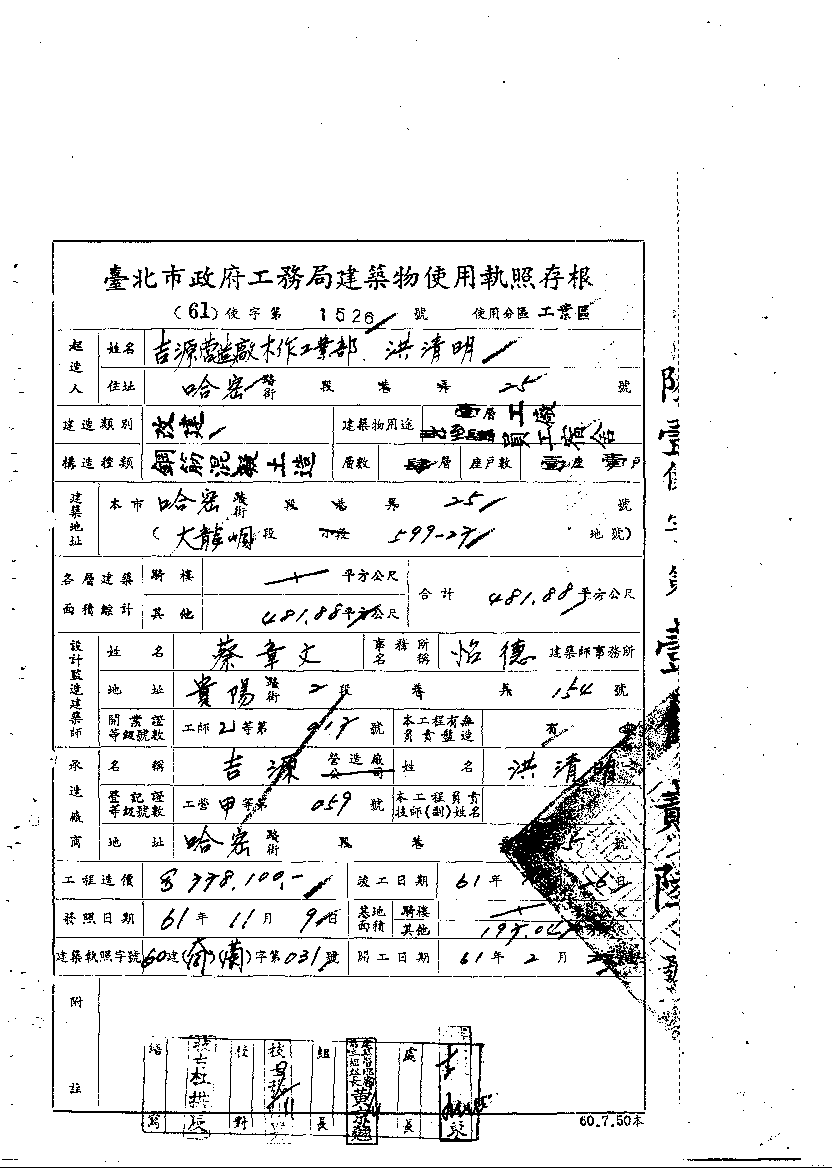 臺北市政府工務局建築物使用執照存根
(61) 使字第 1526 號 使用分區 工業區
起造人 姓名 吉源營造廠木作工業部、洪清明
住址 哈密 路街 段 巷 弄 25 號
建造類別 改建 建築物用途 壹層工廠
員工宿舍
構造種類 鋼筋混凝土造 層數 肆層 座戶數 壹座 壹戶
建築地址 本市 哈密 路街 段 巷 弄 25 號
( 大龍峒 段 小段 599-27 地號)
各層建築面積綜計 騎樓 平方公尺
其他 481.88 平方公尺 合計 481.88 平方公尺
設計監造建築師 姓名 蔡章文 事務所名稱 怡德 建築師事務所
地址 貴陽 路街 2 段 巷 弄 154 號
開業證等級號數 工師 等第 917 號 本工程有無負責監造 有
承造廠商 名稱 吉源 營造廠公司 姓名 洪清明
登記證等級號數 工營 甲 等第 059 號 本工程負責技師(副)姓名
地址 哈密 路街 段 巷 5 號
工程造價 778,100.- 竣工日期 61 年 6 日
發照日期 61 年 11 月 9 日 基地面積 騎樓 公尺
其他 197.04
建築執照字號 60 建( )(蘭)字第 031 號 開工日期 61 年 2 月
附註
繕寫 校對 組長 處長
60.7.50本